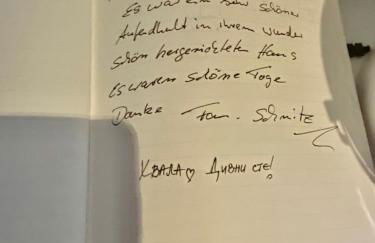 Es war ein sehr schöner
Aufendhalt in ihrem wunder
schön hergerichteten Haus
es waren schöne Tage
Danke Fam. Schmitz
ХВАЛА♡ ДИВНИ СТЕ!